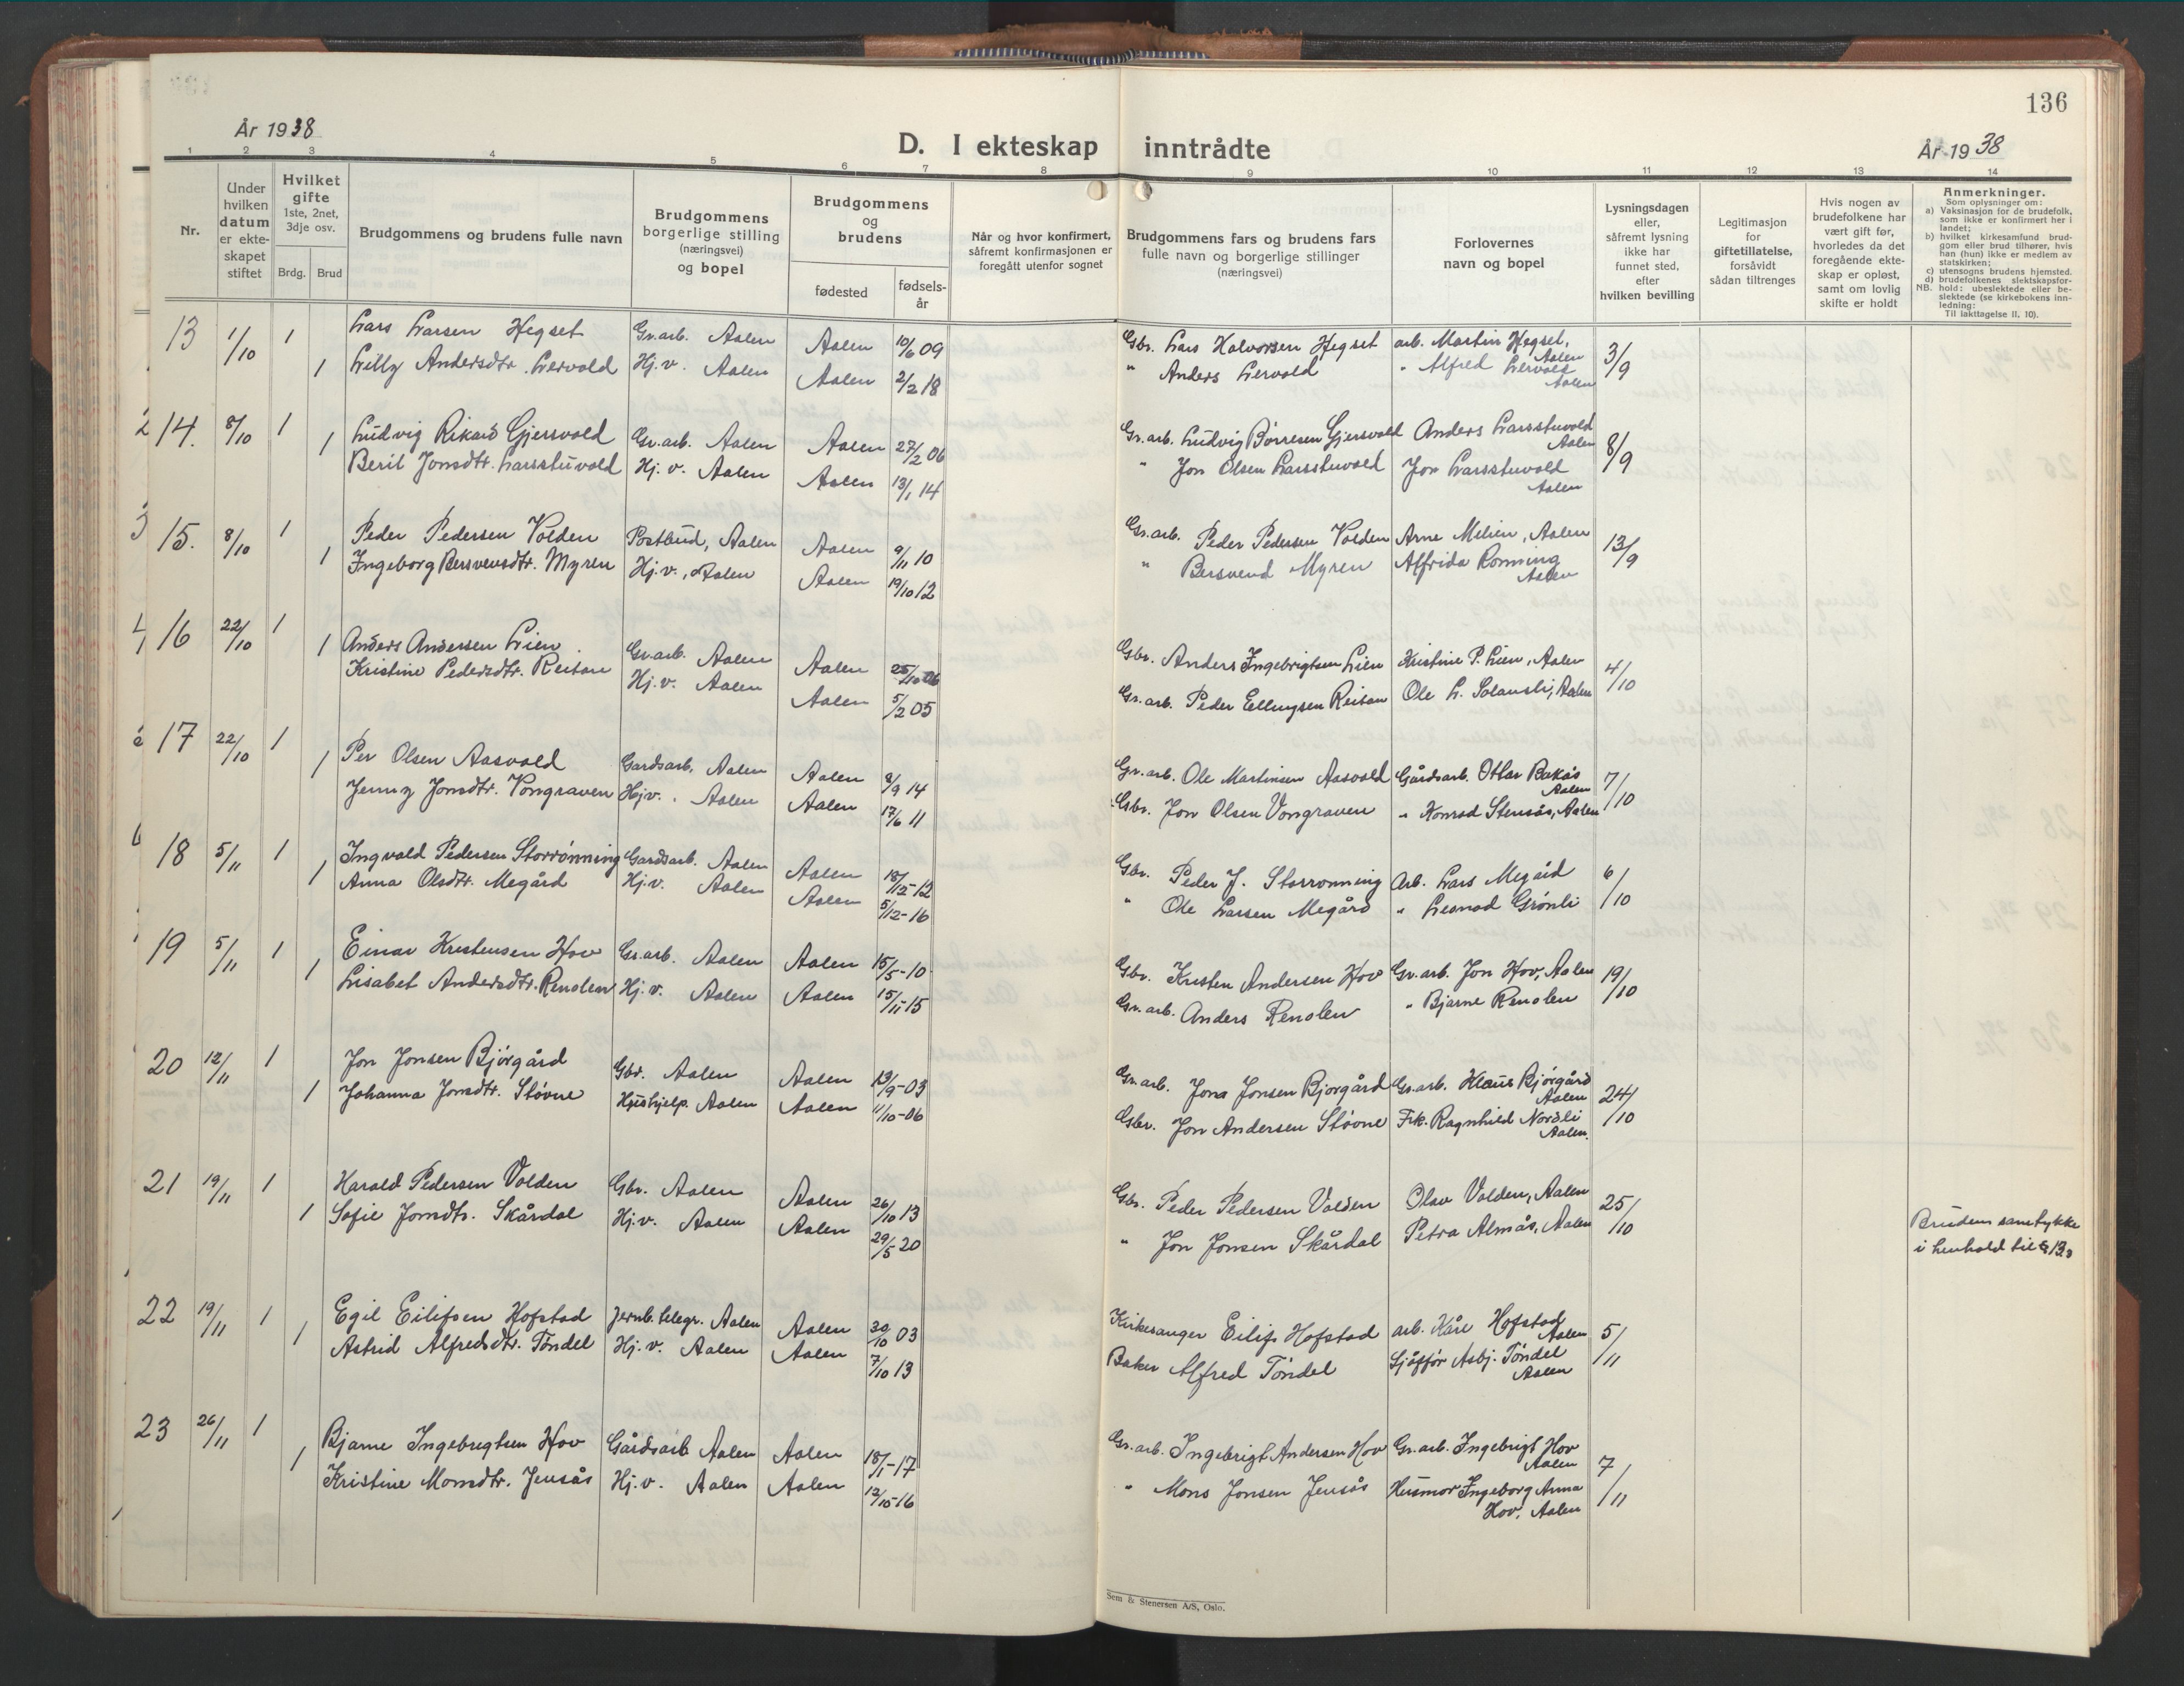 136
År 1938
D. I ekteskap inntrådte
År 1938
1 2 3 4 5 6 7 8 9 10 11 12 13 14
Nr.
Under hvilken datum er ekteskapet stiftet
Hvilket gifte 1ste, 2net, 3dje osv.
Brdg. Brud
Brudgommens og brudens fulle navn
Brudgommens borgerlige stilling (næringsvei) og bopel
Brudgommens og brudens
fødested
fødselsår
Når og hvor konfirmert, såfremt konfirmasjonen er foregått utenfor sognet
Brudgommens fars og brudens fars fulle navn og borgerlige stillinger (næringsvei)
Forlovernes navn og bopel
Lysningsdagen eller, såfremt lysning ikke har funnet sted, efter hvilken bevilling
Legitimasjon for giftetillatelse, forsåvidt sådan tiltrenges
Hvis nogen av brudefolkene har vært gift før, hvorledes da det foregående ekteskap er opløst, samt om lovlig skifte er holdt
Anmerkninger.
Som oplysninger om:
a) Vaksinasjon for de brudefolk, som ikke er konfirmert her i landet;
b) hvilket kirkesamfund brudgom eller brud tilhører, hvis han (hun) ikke er medlem av statskirken;
c) utensogns brudens hjemsted.
d) brudefolkenes slektskapsforhold: ubeslektede eller beslektede (se kirkebokens innledning:
NB. Til iakttagelse II, 10).
13 1/10 1 Lars Larsen Hegset Gr.arb. Aalen Aalen 10/6 09 Gbr. Lars Halvorsen Hegset arb. Martin Hegset, Aalen 3/9
1 Lilly Andersdtr. Lervold Hj.v. Aalen Aalen 2/2 18 " Anders Lervold " Alfred Lervold Aalen
14. 8/10 1 Ludvig Rikard Gjersvold Gr.arb. Aalen Aalen 27/2 06 Gr.arb. Ludvig Børresen Gjersvold Anders Larsstuvold Aalen 8/9
1 Berit Jonsdtr. Larsstuvold Hj.v. Aalen Aalen 13/1 14 " Jon Olsen Larsstuvold Jon Larsstuvold Aalen
15. 8/10 1 Peder Pedersen Volden Postbud, Aalen Aalen 9/11 10 Gr.arb. Peder Pedersen Volden Arne Melien, Aalen 13/9
1 Ingeborg Bersvensdtr. Myren Hj.v., Aalen Aalen 19/10 12 " Bersvend Myren Alfrida Rønning Aalen
16 22/10 1 Anders Andersen Lien Gr.arb. Aalen Aalen 25/10 06 Gbr. Anders Ingebrigtsen Lien Kristine P. Lien, Aalen 4/10
1 Kristine Pedersdtr. Reitan Hj.v. Aalen Aalen 5/2 05 Gr.arb. Peder Ellingsen Reitan Ole L. Aalen
17 22/10 1 Per Olsen Aasvold Gardsarb. Aalen Aalen 8/9 14 Gr.arb. Ole Martinsen Aasvold Gårdsarb. Ottar Bakås Aalen 7/10
1 Jenny Jonsdtr. Vongraven Hj.v. Aalen Aalen 17/6 11 Gbr. Jon Olsen Vongraven " Konrad Stensås, Aalen
18 5/11 1 Ingvald Pedersen Storrønning Gardsarb. Aalen Aalen 18/12-12 Gbr. Peder J. Storrønning Arb. Lars Megård 6/10
1 Anna Olsdtr. Megård Hj.v. Aalen Aalen 5/12-16 " Ole Larsen Megård " Grønli
19 5/11 1 Einar Kristensen Hov Gr.arb. Aalen Aalen 15/5-10 Gbr. Kristen Andersen Hov Gr.arb. Jon Hov, Aalen 19/10
1 Lisabet Andersdtr. Renolen Hj.v. Aalen Aalen 15/11-15 Gr.arb. Anders Renolen " Bjarne Renolen
20 12/11 1 Jon Jonsen Bjørgård Gbr. Aalen Aalen 13/9-03 Gr.arb. Jon Jonsen Bjørgård Gr.arb. Klaus Bjørgård Aalen 24/10
1 Johanna Jonsdtr. Støvne Hushjelp. Aalen Aalen 11/10-06 Gbr. Jon Andersen Støvne Frk. Ragnhild Nordli Aalen.
21 19/11 1 Harald Pedersen Volden Gbr. Aalen Aalen 26/10 13 Gbr. Peder Pedersen Volden Olav Volden, Aalen 25/10 Brudens samtykke
1 Sofie Jonsdtr. Skårdal Hj.v. Aalen Aalen 29/5 20 " Jon Jonsen Skårdal Petra Almås, Aalen i henhold til § 13.
22 19/11 1 Egil Eilifsen Hofstad Jernb.telegr. Aalen Aalen 30/10 03 Kirkesanger Eilif Hofstad arb. Kåre Hofstad Aalen 5/11
1 Astrid Alfredsdtr. Tøndel Hj.v. Aalen Aalen 7/10 13 Baker Alfred Tøndel Sjåffør Asbj. Tøndel Aalen
23 26/11 1 Bjarne Ingebrigtsen Hov Gårdsarb Aalen Aalen 18/1-17 Gr.arb. Ingebrigt Andersen Hov Gr.arb. Ingebrigt Hov Aalen 7/11
1 Kristine Monsdtr. Jensås Hj.v. Aalen Aalen 12/10-16 " Mons Jonsen Jensås Husmor Ingeborg Anna Hov, Aalen
Sem & Stenersen A/S, Oslo.